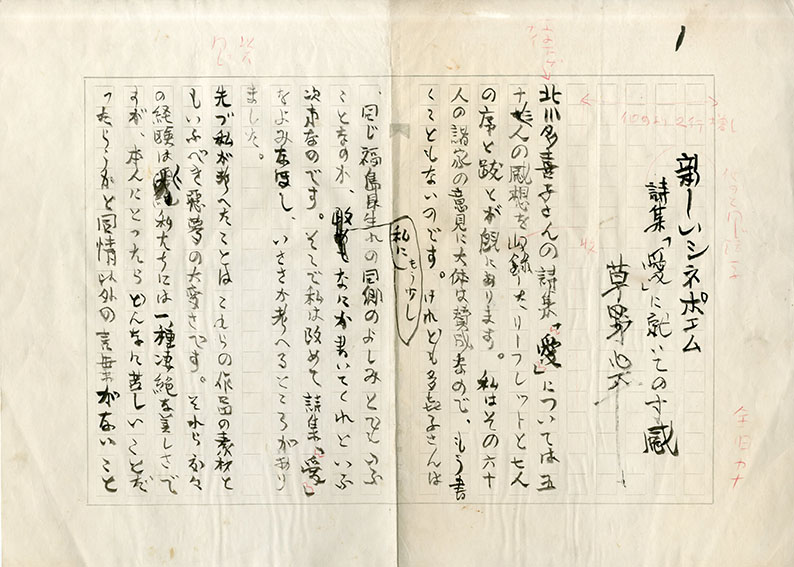 1
新しいシネポエム
詩集「愛」に就いての寸感
草野心平
北川多喜子さんの詩集「愛」については五
十人の感想を収録したリーフレットと七人
の序と跋とが既にあります。私はその六十
人の諸家の意見に大体は賛成なので、もう書
くこともないのです。けれども多喜子さんは
私にもう少し
、同じ福島県生れの同郷のよしみとでもいふ
ことなのか、なにか書いてくれといふ
次第なのです。そこで私は改めて詩集「愛」
をよみなほし、いささか考へるところがあり
ました。
先づ私が考へたことはこれらの作品の素材と
もいふべき悪夢の大きさです。それら不幸
の経験は私たちには一種凄絶な美しさで
すが、本人にとつたらどんなに苦しいことだ
つたらうかと同情以外の言葉がないこと
収